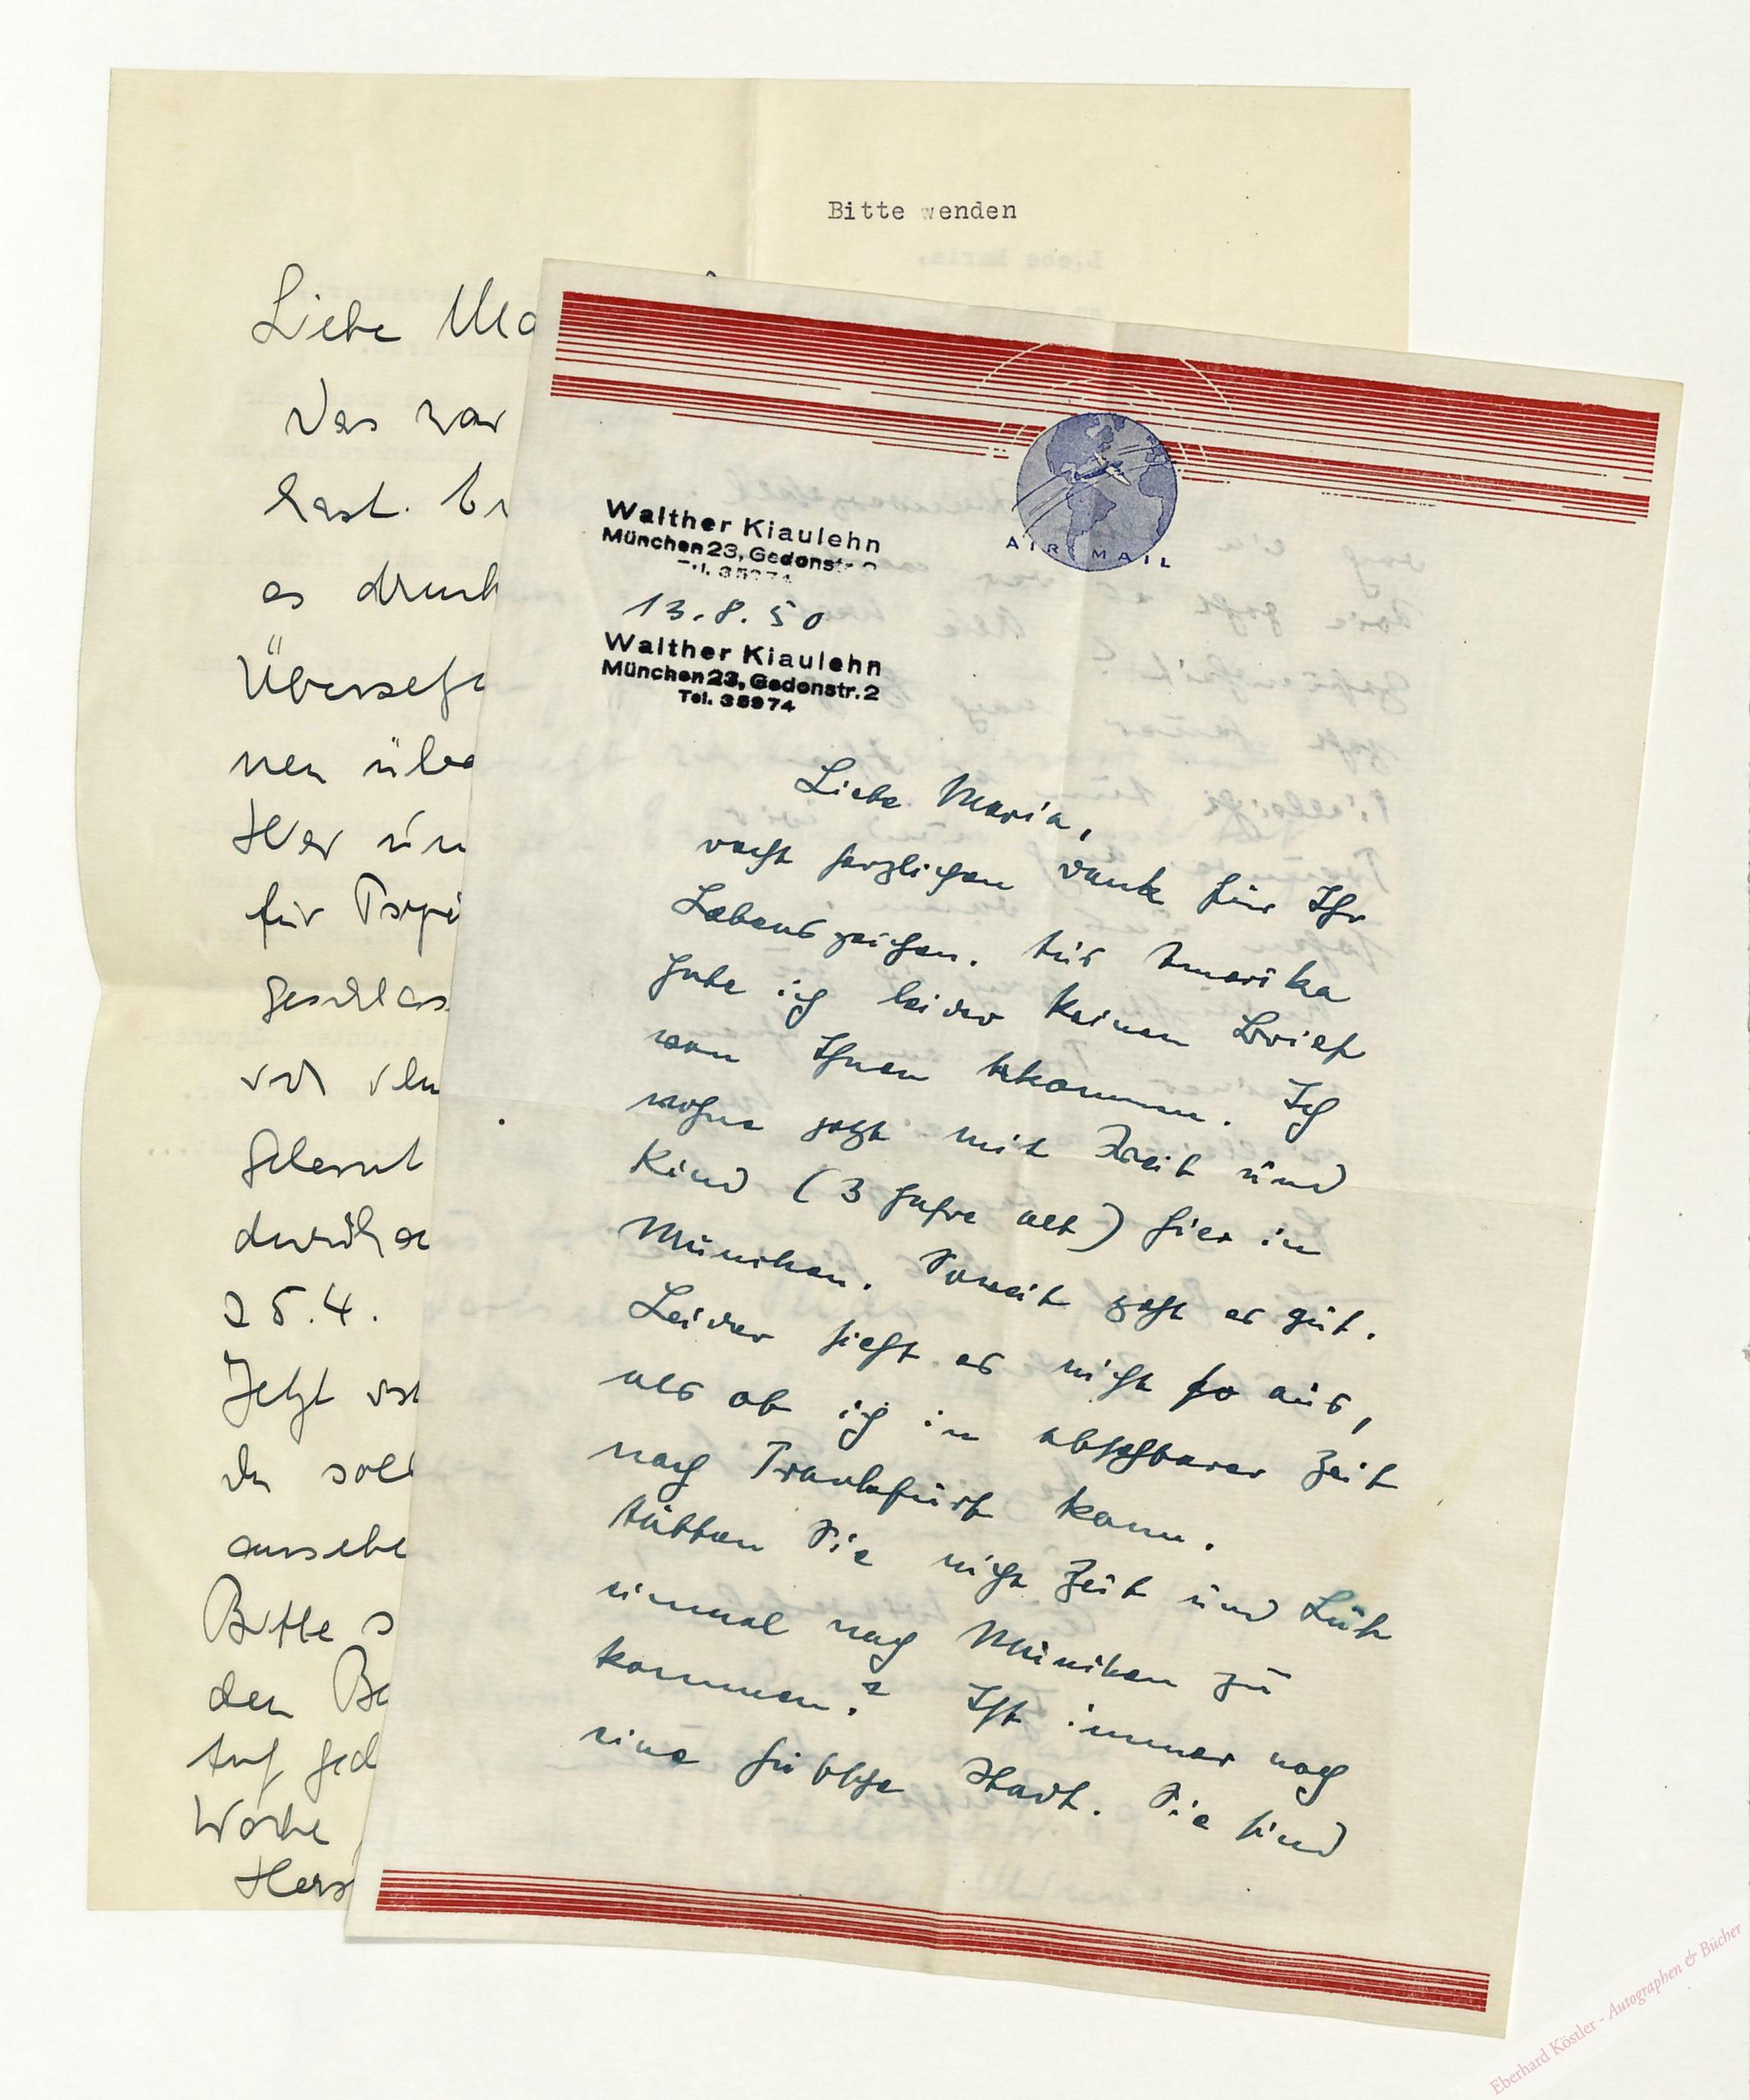 Bitte wenden
Liebe Ma
Das war
hast.
es druck
Überse
nen übe
Her un
für
geschlos
vor
gelernt
25.4.
Jetzt ist
du soll
aussehe
Bitte s
den Be
Auf jed
Woche
Herz
AIR MAIL
Walther Kiaulehn
München 23, Gedonstr. 2
Tel. 35974
13.8.50
Walther Kiaulehn
München 23, Gedonstr. 2
Tel. 35974
Liebe Maria,
recht herzlichen Dank für Ihr
Lebenszeichen. Aus Amerika
habe ich leider keinen Brief
von Ihnen bekommen. Ich
wohne jetzt mit Weib und
Kind (3 Jahre alt) hier in
München. Soweit geht es gut.
Leider sieht es nicht so aus,
als ob ich in absehbarer Zeit
nach Frankfurt komm.
Hätten Sie nicht Zeit und Lust
einmal nach München zu
kommen? Ist immer noch
eine hübsche Stadt. Sie sind
Eberhard Köstler - Autographen & Bücher